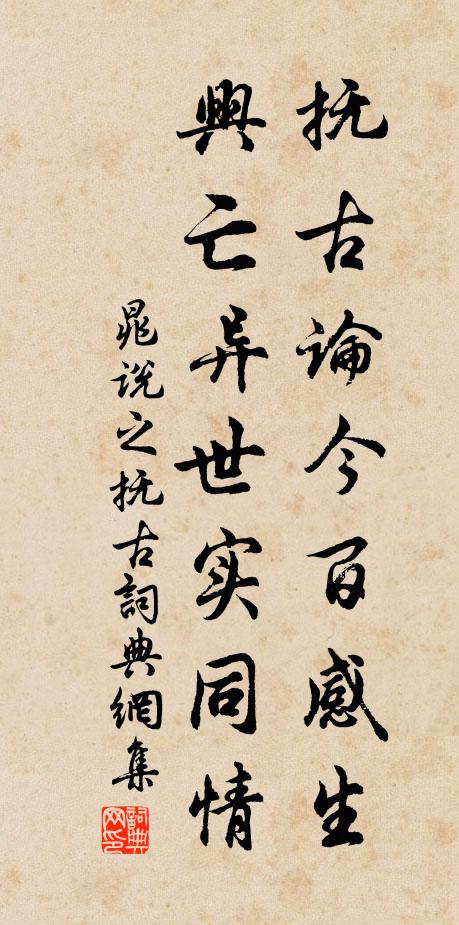 抚古論今百感生
興亡异世实同情
晁説之抚古詞典網集
詞典網印